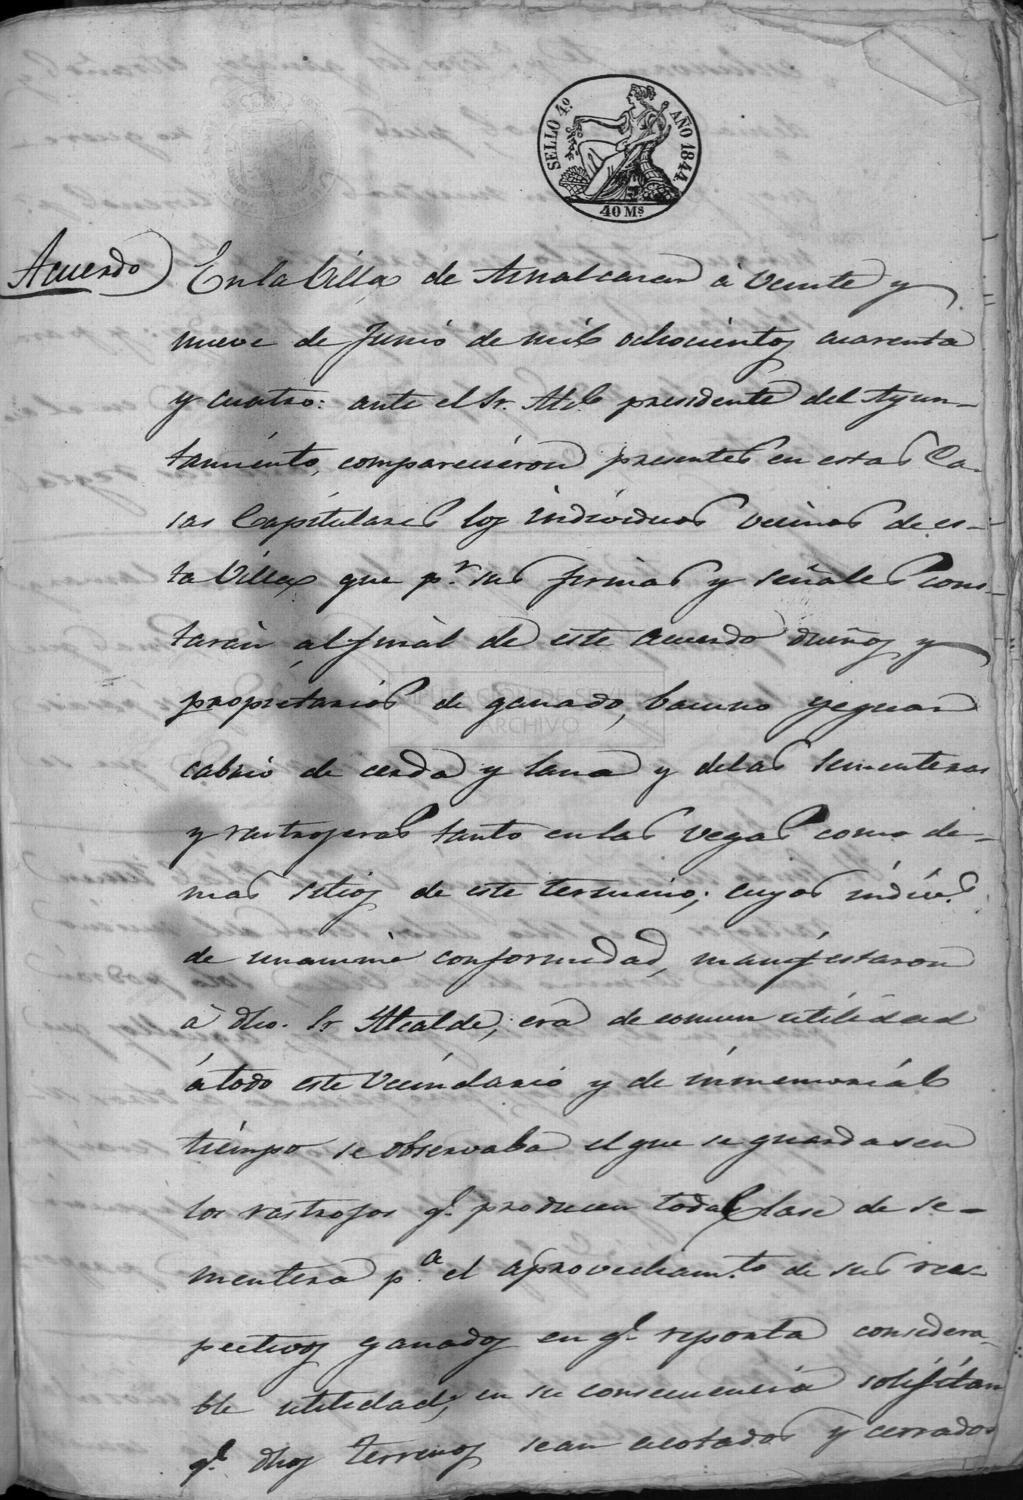 SELLO 4.º AÑO 1844.
40 Ms
Acuerdo) En la Villa de Aznalcazar á Veinte y
nueve de Junio de mil ochocientos cuarenta
y cuatro: ante el Sr. Alc.e presidente del Ayun-
tamiento, comparecieron presentes en estas Ca-
sas Capitulares los individuos vecinos de es-
ta Villa que p.r sus firmas y señales cons-
tarán al final de este acuerdo dueños y
propietarios de ganado, bacuno yeguar
cabrio de cerda y lana y de las sementeras
y rastrojeras tanto en las vegas como de-
mas sitios de este termino; cuyos indiv.s
de unanime conformidad, manifestaron
á dho. Sr. Alcalde, era de comun utilidad
á todo este Vecindario y de inmemorial
tiempo se observaba el que se guardasen
los rastrojos q.e producen toda Clase de se-
mentera p.a el aprovecham.to de sus res-
pectivos ganados en q.e reporta considera-
ble utilidad; en su consecuencia solisitan
q.e dhos terrenos sean acotados y cerrados
DIPUTACIÓN DE SEVILLA
ARCHIVO